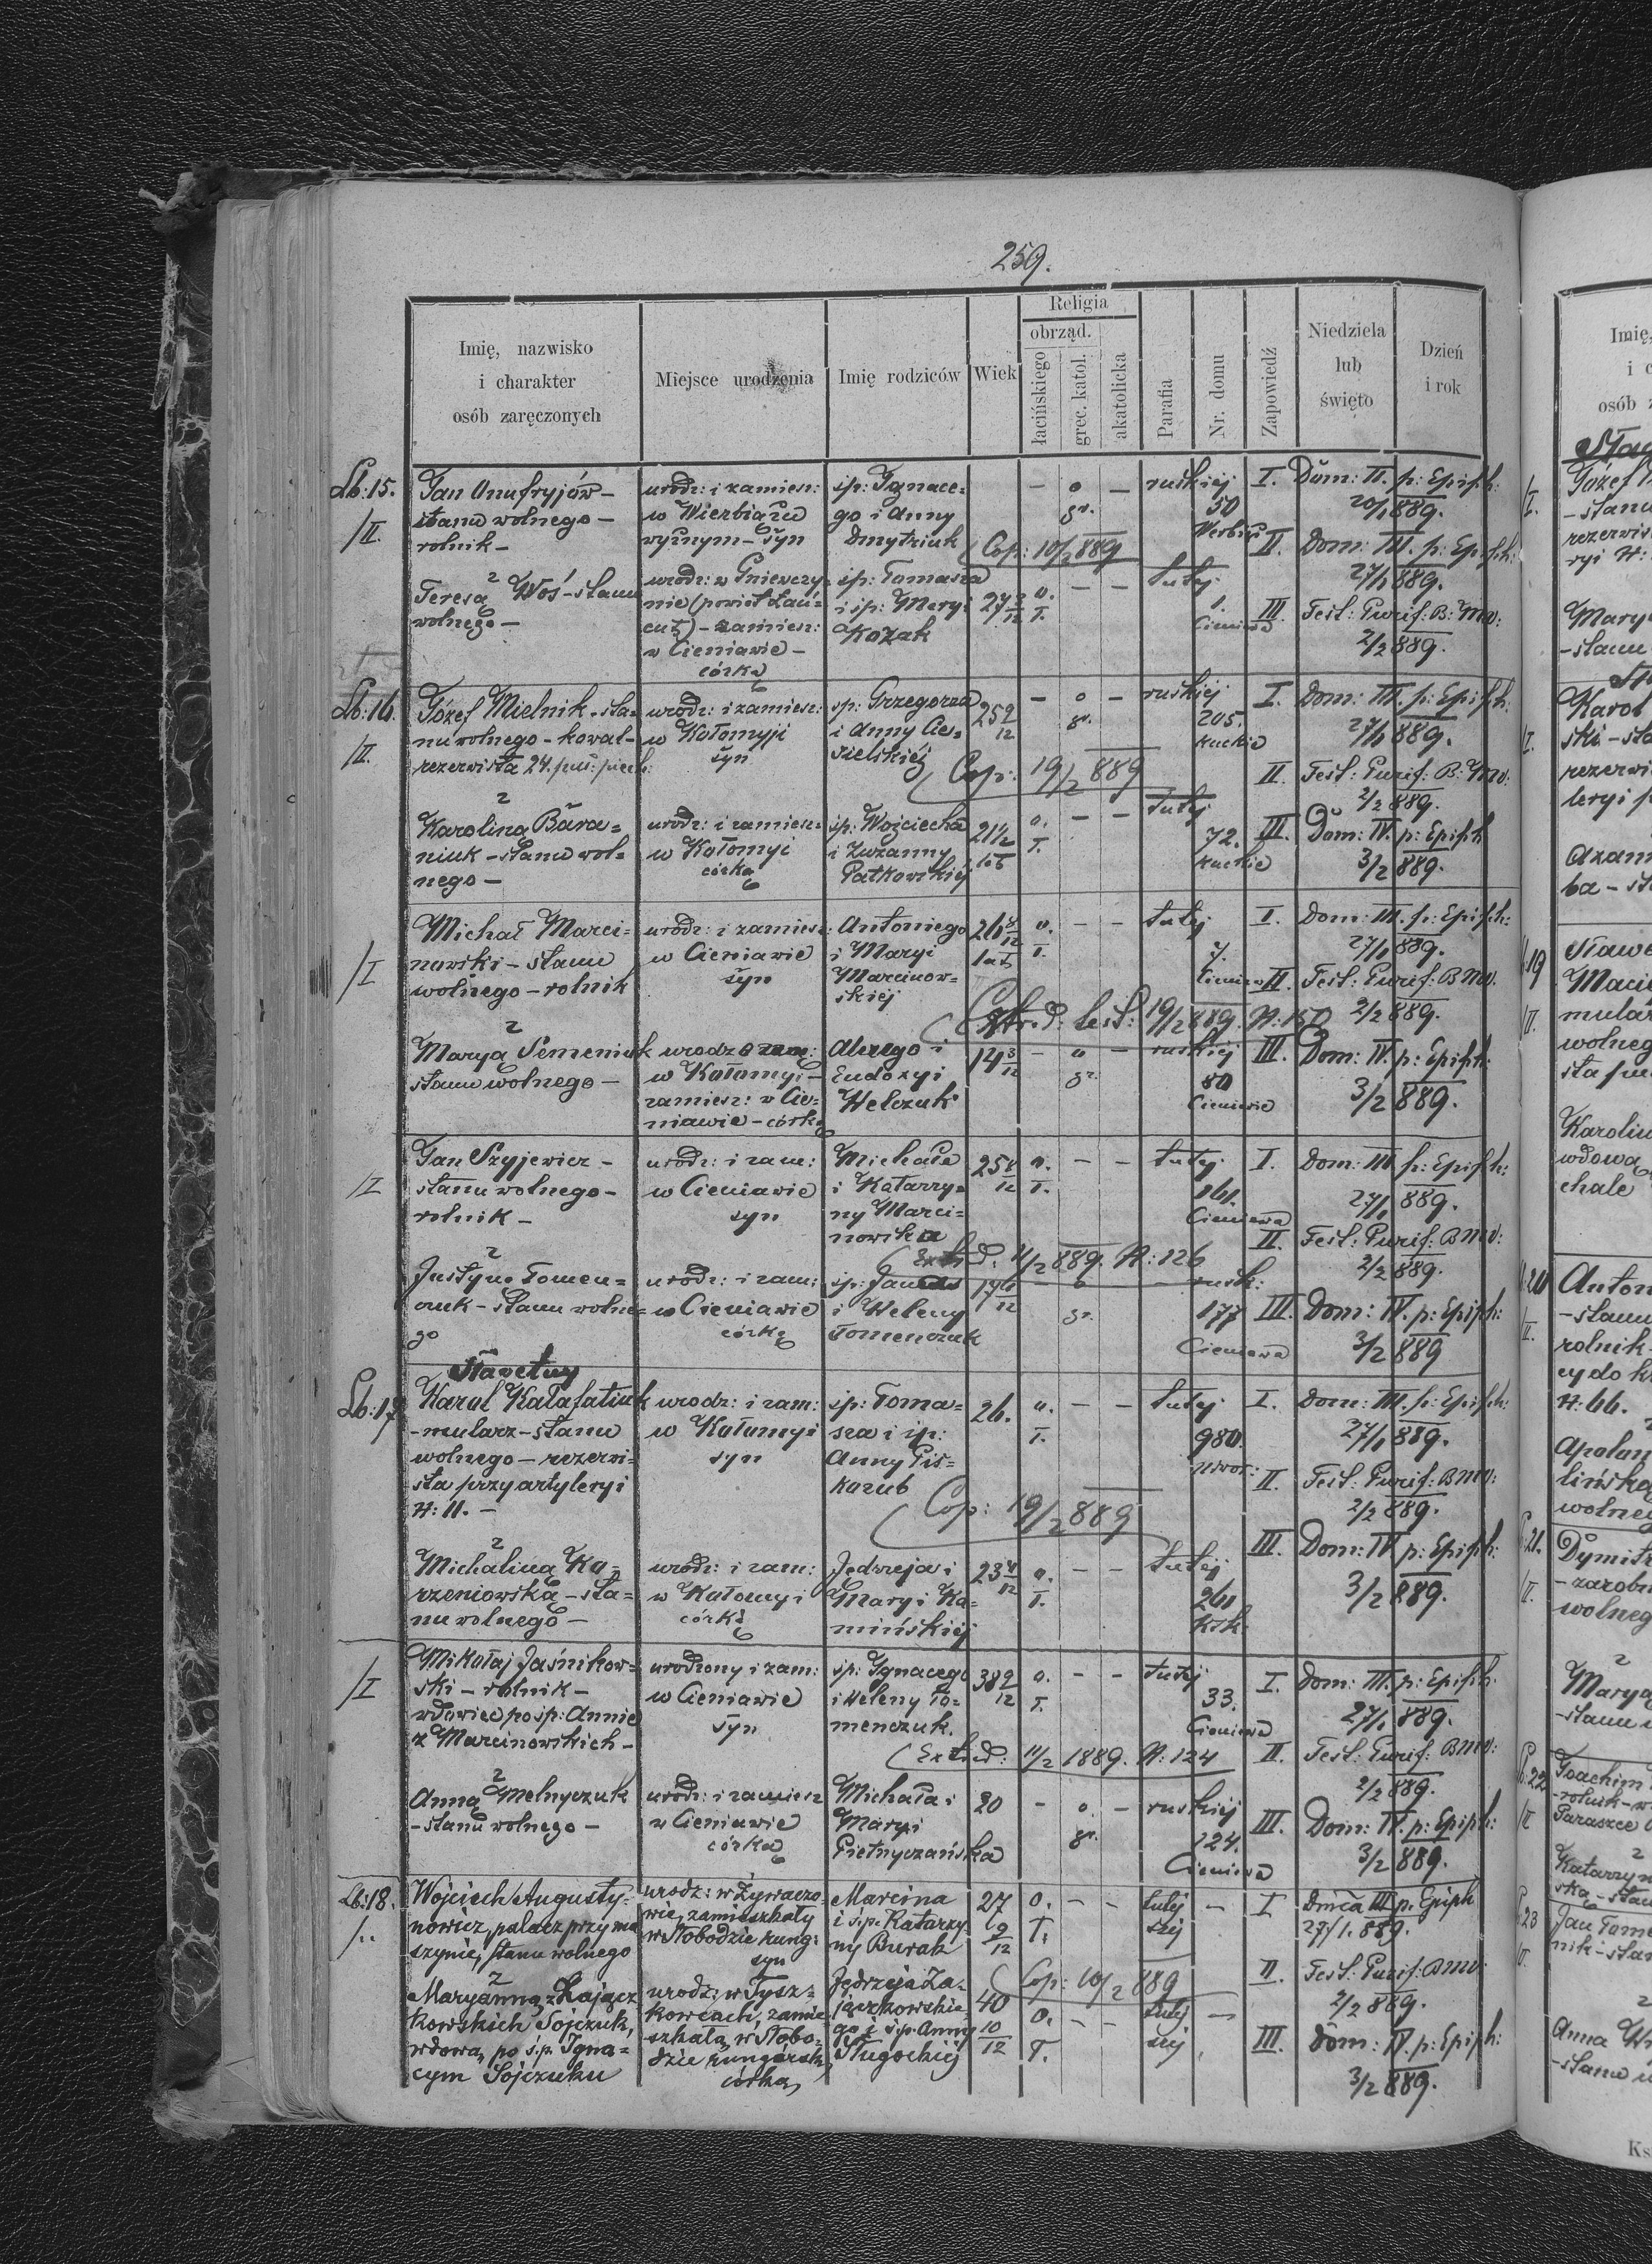 259.
Imię, nazwisko
i charakter
osób zaręczonych
Miejsce urodzenia
Imię rodziców
Wiek
Religia
obrząd.
łacińskiego
grec. katol.
akatolicka
Parafia
Nr. domu
Zapowiedź
Niedziela
lub
święto
Dzień
i rok
Lb: 15.
/II.
Jan Onufryjów –
stanu wolnego –
rolnik –
urodz: i zamiesz:
w Wierbiążu
wyżnym – syn
śp: Ignace=
go i Anny
Dmytriuk
– o –
gr.
ruskiej
50
I. Dom: II. p: Epiph:
20/1 889.
Cop: 10/2 889
II. Dom: III. p: Epiph:
27/1 889.
z
Teresą Woś – stanu
wolnego –
urodz: w Gniewczy=
nie (powiat Łań=
cut) – zamiesz:
w Cieniawie –
córką
śp: Tomasza
i śp: Maryi
Kozak
27 3/12
o. – –
ł.
tutej
1.
Cieniawa
III Fest: Purif: B: Mv:
2/2 889.
Lb: 16.
/II.
Józef Mielnik – sta=
nu wolnego – kowal –
rezerwista 24. puł: piech:
urodz: i zamiesz:
w Kołomyji
syn
śp: Grzegorza
i Anny Cie=
sielskiéj
25 2/12
– o –
gr.
ruskiej
205.
kuckie
I. Dom: III. p: Epiph:
27/1 889.
Cop: 19/2 889
II. Fest: Purif: B: Mv:
2/2 889.
z
Karoliną Bara=
niuk – stanu wol=
nego –
urodz: i zamiesz:
w Kołomyi
córką
śp: Wojciecha
i Zuzanny
Patkowskiej
21 1/2
lat
o. – –
ł.
tutej
72.
kuckie
III. Dom: IV. p: Epiph
3/2 889.
/I
Michał Marci=
nowski – stanu
wolnego – rolnik
urodz: i zamiesz:
w Cieniawie
syn
Antoniego
i Maryi
Marcinow=
skiej
26 8/12
lat
o. – –
ł.
tutej
7.
Cieniawa
I. Dom: III. p: Epiph:
27/1 889.
II. Fest: Purif: B Mv.
2/2 889.
Extrad: test: 19/2 889. N: 150
z
Maryą Semeniuk
stanu wolnego –
urodz
w Kołomyi –
zamiesz: w Cie=
niawie – córką
Alexego i
Eudoxyi
Welczuk
– o –
gr.
ruskiej
80
Cieniawa
III. Dom: IV. p: Epiph:
3/2 889.
/I
Jan Szyjewicz –
stanu wolnego –
rolnik –
urodz: i zam:
w Cieniawie
syn
Michała
i Katarzy=
ny Marci=
nowska
o. – –
ł.
tutej
161.
Cieniawa
I. Dom: III p: Epiph:
27/1 889.
II. Fest: Purif: B Mv:
2/2 889.
Extrad. 11/2 889. N: 126
z
Justyną Tomen=
czuk – stanu wolne=
go
urodz: i zam:
w Cieniawie
córką
śp: Jana
i Heleny
Tomenczuk
17 6/12
– o –
gr.
rusk:
177
Cieniawa
III. Dom: IV. p: Epiph:
3/2 889
Lb: 17
Sławetny
Karol Kałafatiuk
– mularz – stanu
wolnego – rezerwi=
sta przy artyleryi
N: 11. –
urodz: i zam:
w Kołomyi
syn
śp: Toma=
sza i śp:
Anny Pis=
kozub
26.
o. – –
ł.
tutej
980.
I. Dom: III. p: Epiph:
27/1 889.
II. Fest: Purif: B Mv:
2/2 889.
Cop: 19/2 889
z
Michaliną Ko=
rzeniowską – sta=
nu wolnego –
urodz: i zam:
w Kołomyi
córką
Jędrzeja i
Maryi Ka=
mińskiej
23 4/12
o. – –
ł.
tutej
261
III. Dom: IV p: Epiph:
3/2 889.
/I
Mikołaj Jaśnikow=
ski – rolnik –
wdowiec po śp: Annie
z Marcinowskich –
urodzony i zam:
w Cieniawie
syn
śp: Ignacego
i Heleny To=
menczuk.
38 2/12
o. – –
ł.
tutej
33.
Cieniawa
I. Dom: III. p: Epiph:
27/1 889.
Extrad: 11/2 1889. N: 124
II. Fest: Purif: B Mv:
2/2 889.
z
Anną Melnyczuk
– stanu wolnego –
urodz: i zamiesz
w Cieniawie
córką
Michała i
Maryi
Pietnyczańska
20
– o. –
gr.
ruskiej
124.
Cieniawa
III. Dom: IV. p: Epiph:
3/2 889.
Lb: 18.
Wojciech Augusty=
nowicz, palacz przy ma
szynie, stanu wolnego
urodz: w Żywaczo
wie, zamieszkały
w Słobodzie rung:
syn
Marcina
i ś.p. Katarzy
ny Burak
27
9/12
o. – –
ł.
tutej –
szej
I Dnica III p. Epiph
27/1. 889.
Cop: 10/2 889
II. Fest: Purif: B Mv:
2/2 889.
z
Maryanną z Zającz
kowskich Sójczuk,
wdową po ś.p. Igna=
cym Sójczuku
urodz: w Tysz=
kowcach, zamie
szkałą w Słobo=
dzie rungórsk
córką
Jędrzeja Za=
jączkowskie
go i ś.p. Anny
Sługockiej
40
10/12
o. – –
ł.
tutej –
szej
III. Dom: IV. p: Epiph:
3/2 889.